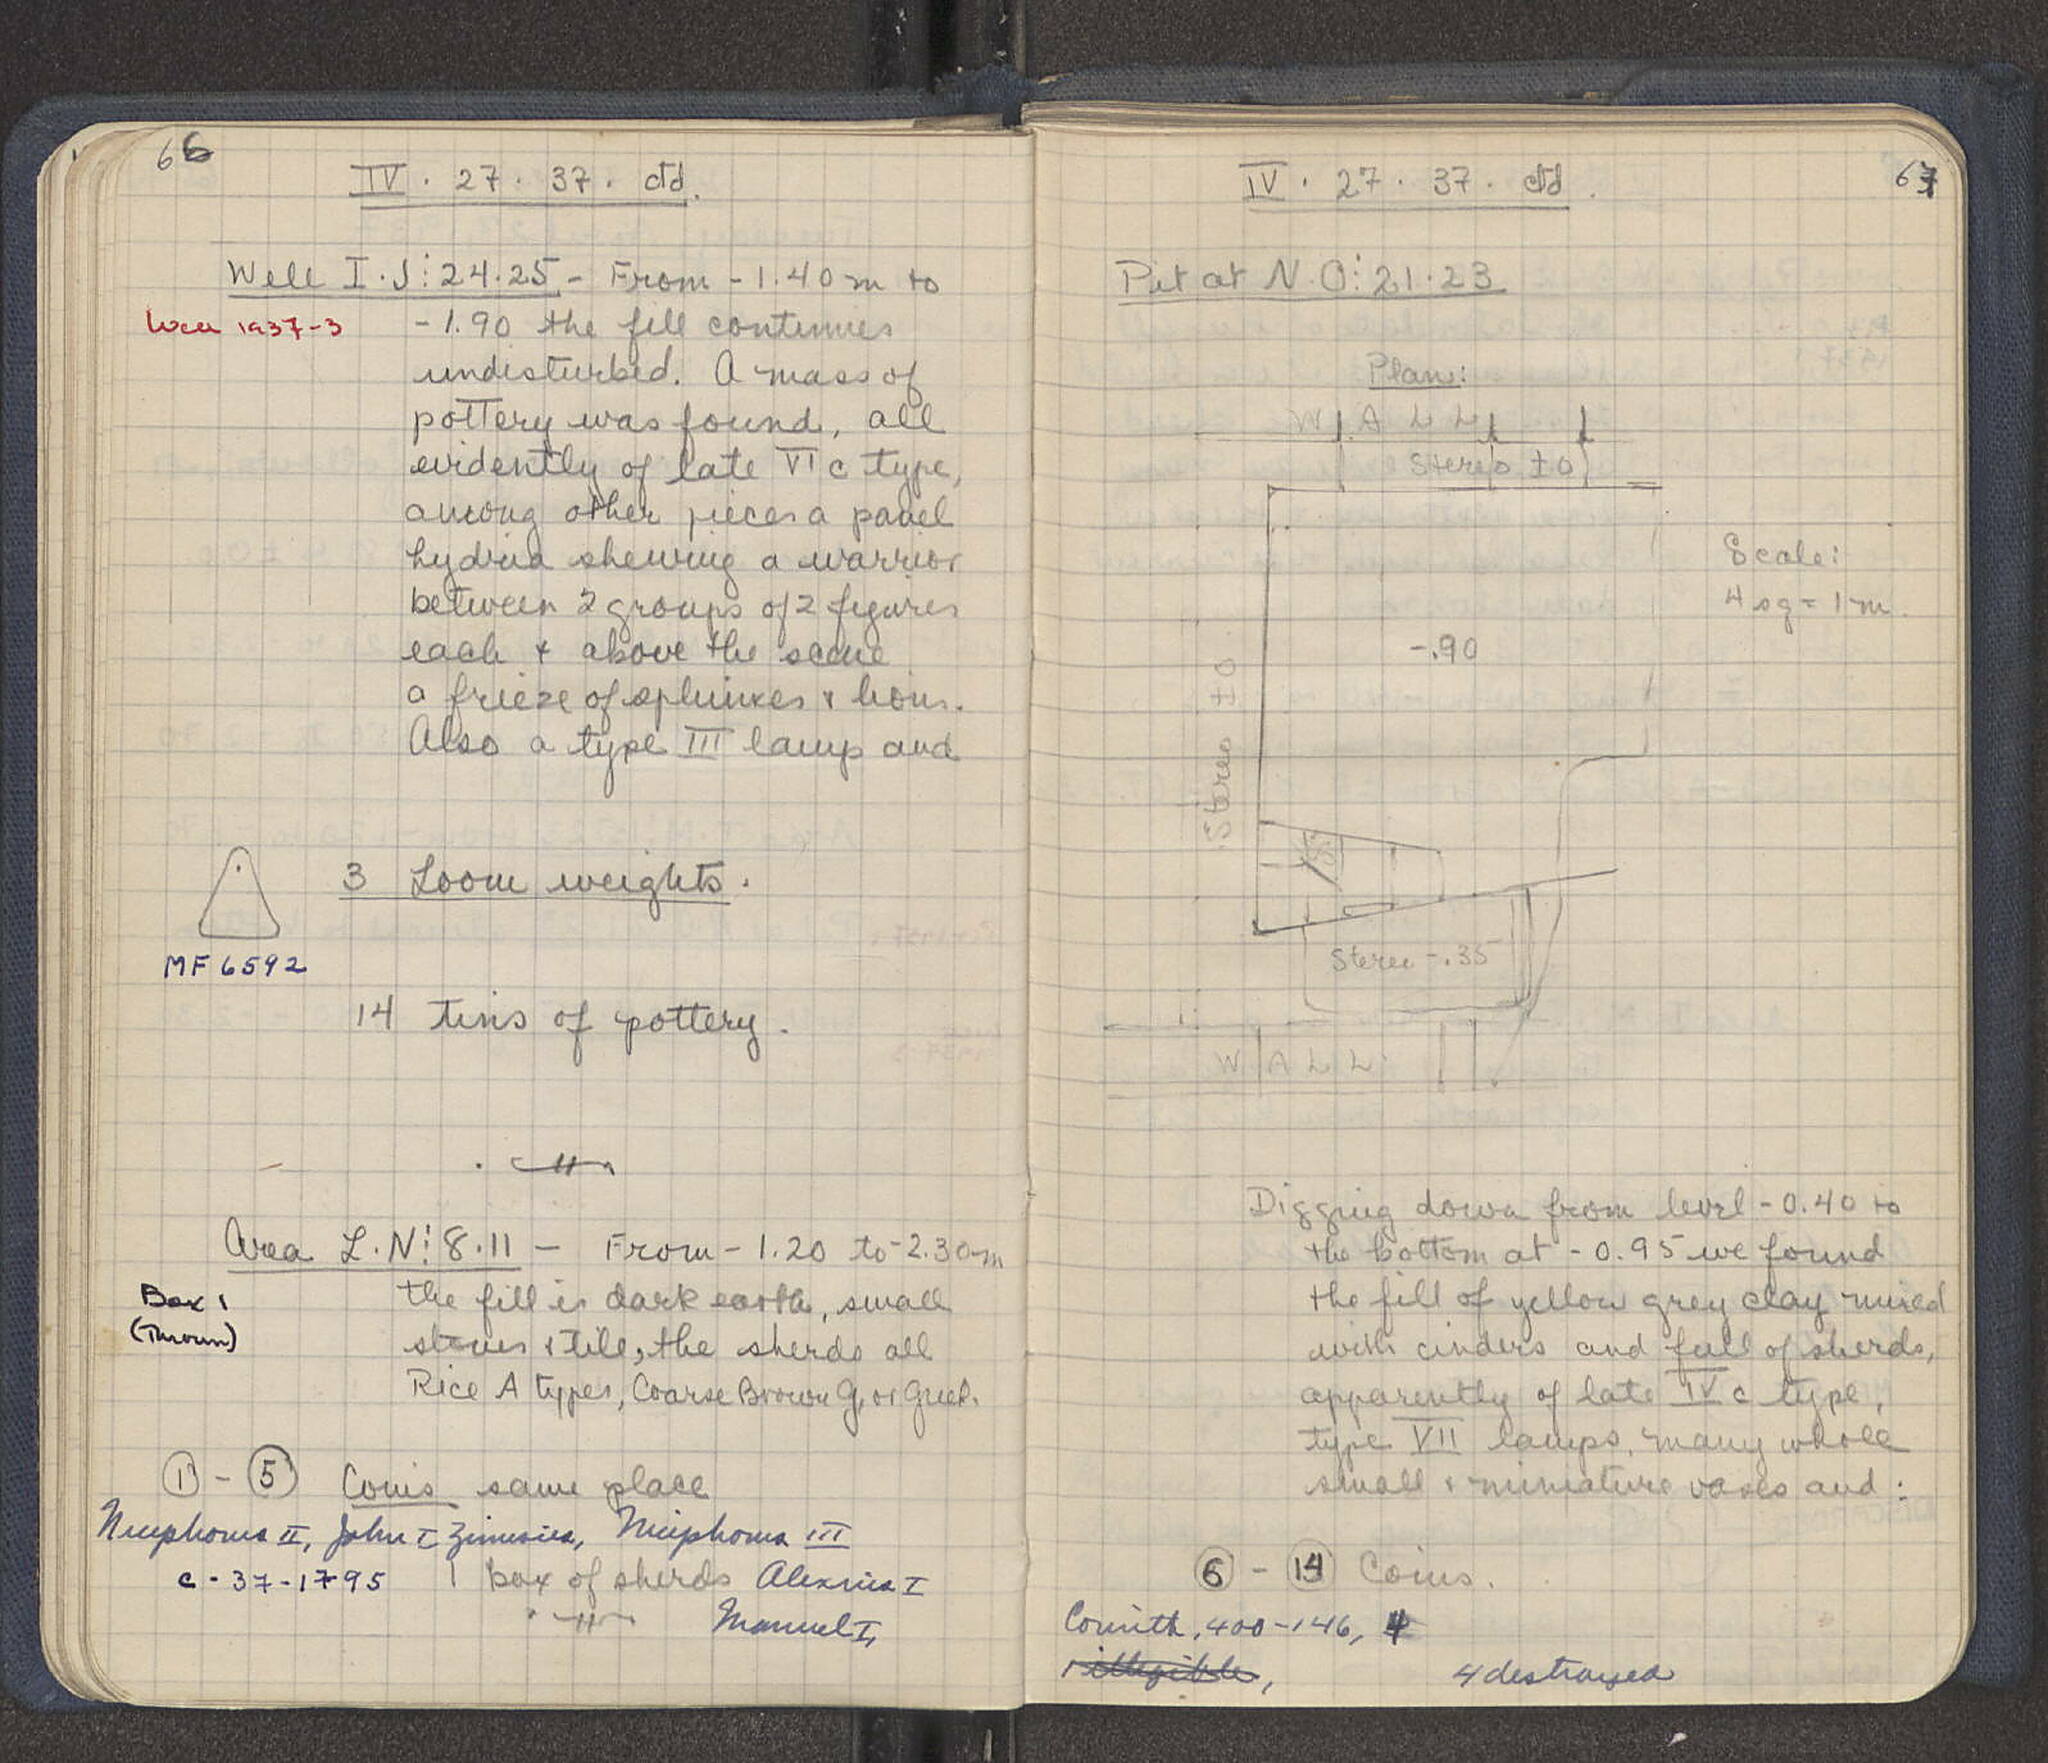 66
IV . 27 . 37 . ctd.
Well I.J:24.25 - From -1.40 m to
Well 1937-3
-1.90 the fill continues
undisturbed. A mass of
pottery was found, all
evidently of late VI c type,
among other pieces a panel
hydria shewing a warrior
between 2 groups of 2 figures
each + above the scene
a frieze of sphinxes + lions.
Also a type III lamp and
3 Loom weights.
MF 6592
14 tins of pottery.
Area L.N:8.11 - From -1.20 to -2.30 m
Box 1
(Thrown)
the fill is dark earth, small
stones + tile, the sherds all
Rice A types, Coarse Brown G, or Green.
1 - 5 Coins same place
Nicephorus II, John I Zimisces, Nicephorus III
c-37-1795 1 box of sherds Alexius I
Manuel I,
67
IV . 27 . 37 . ctd.
Pit at N.O:21.23
Plan:
WALL
Stereo ±0
Scale:
4 sq = 1 m.
-.90
Stereo ±0
Stereo -.35
WALL
Digging down from level -0.40 to
the bottom at -0.95 we found
the fill of yellow grey clay mixed
with cinders and full of sherds,
apparently of late IV c type,
type VII lamps, many whole
small + miniature vases and :
6 - 14 Coins.
Corinth, 400-146, 4
illegible,
4 destroyed